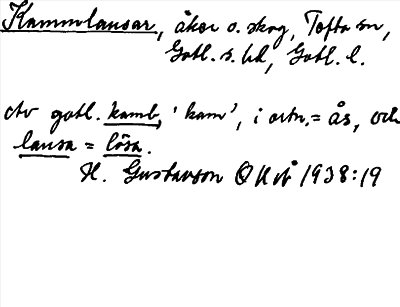 Kammlausar, åker o. skog, Tofta sn,
Gotl. s. hd, Gotl. l.
Av gotl. kamb, 'kam', i ortn. = ås, och
lausa = lösa.
H. Gustavson OUÅ 1938:19